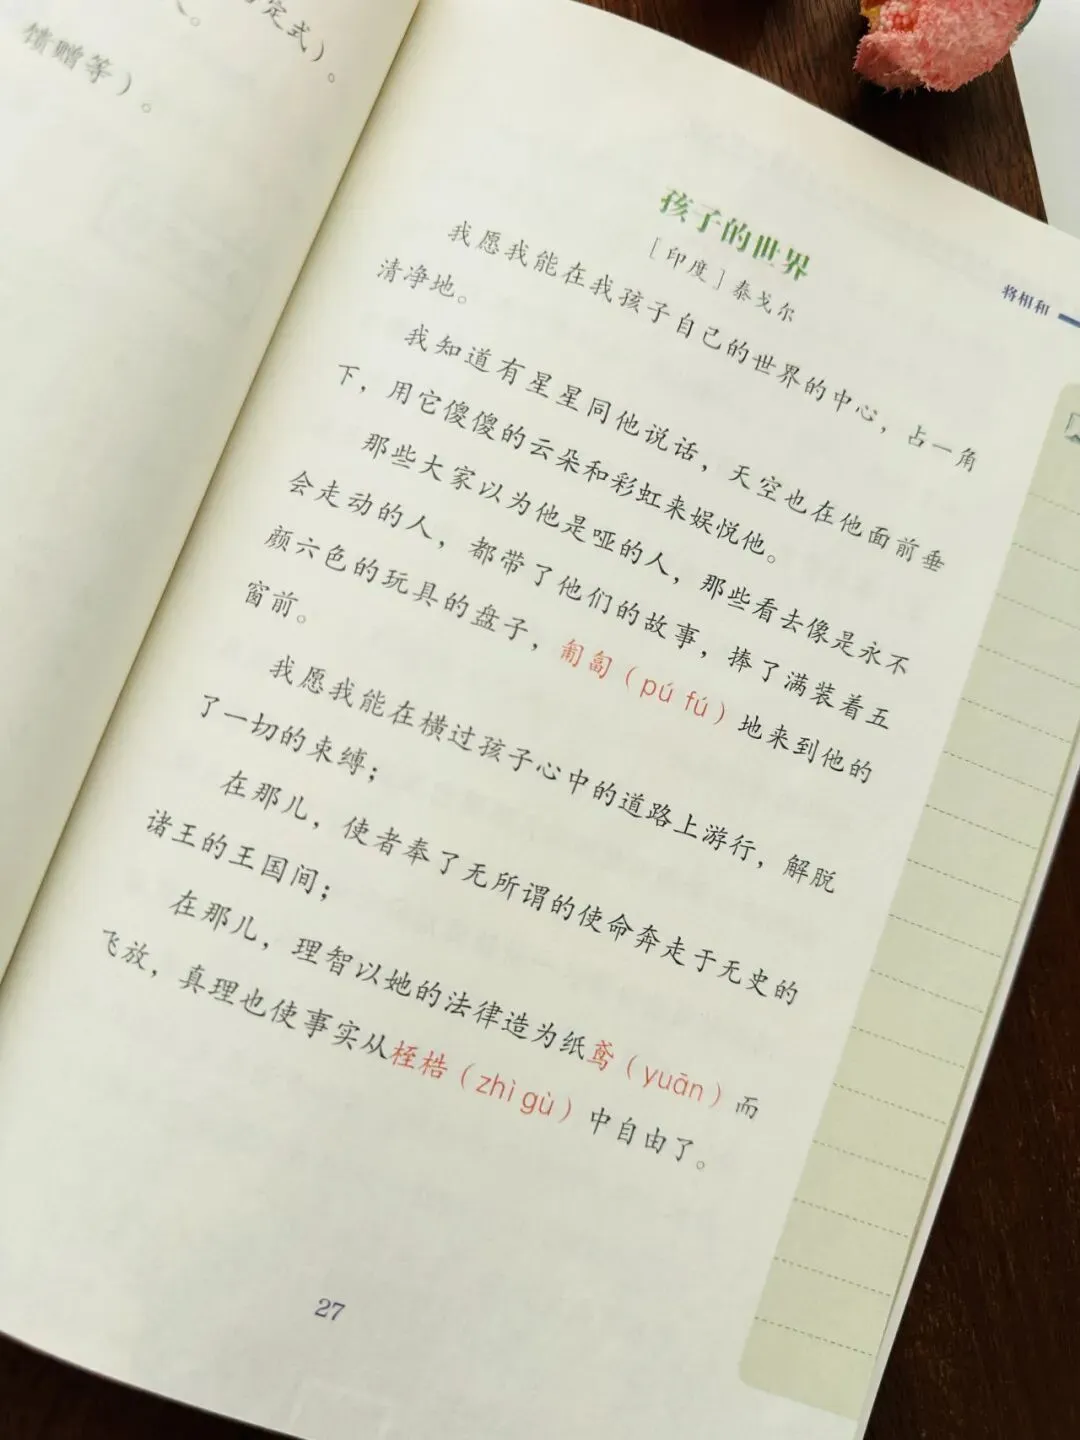 定式）。
人。
馈赠等）。
将相和
孩子的世界
［印度］泰戈尔
我愿我能在我孩子自己的世界的中心，占一角
清净地。
我知道有星星同他说话，天空也在他面前垂
下，用它傻傻的云朵和彩虹来娱悦他。
那些大家以为他是哑的人，那些看去像是永不
会走动的人，都带了他们的故事，捧了满装着五
颜六色的玩具的盘子，匍匐（pú fú）地来到他的
窗前。
我愿我能在横过孩子心中的道路上游行，解脱
了一切的束缚；
在那儿，使者奉了无所谓的使命奔走于无史的
诸王的王国间；
在那儿，理智以她的法律造为纸鸢（yuān）而
飞放，真理也使事实从桎梏（zhì gù）中自由了。
27